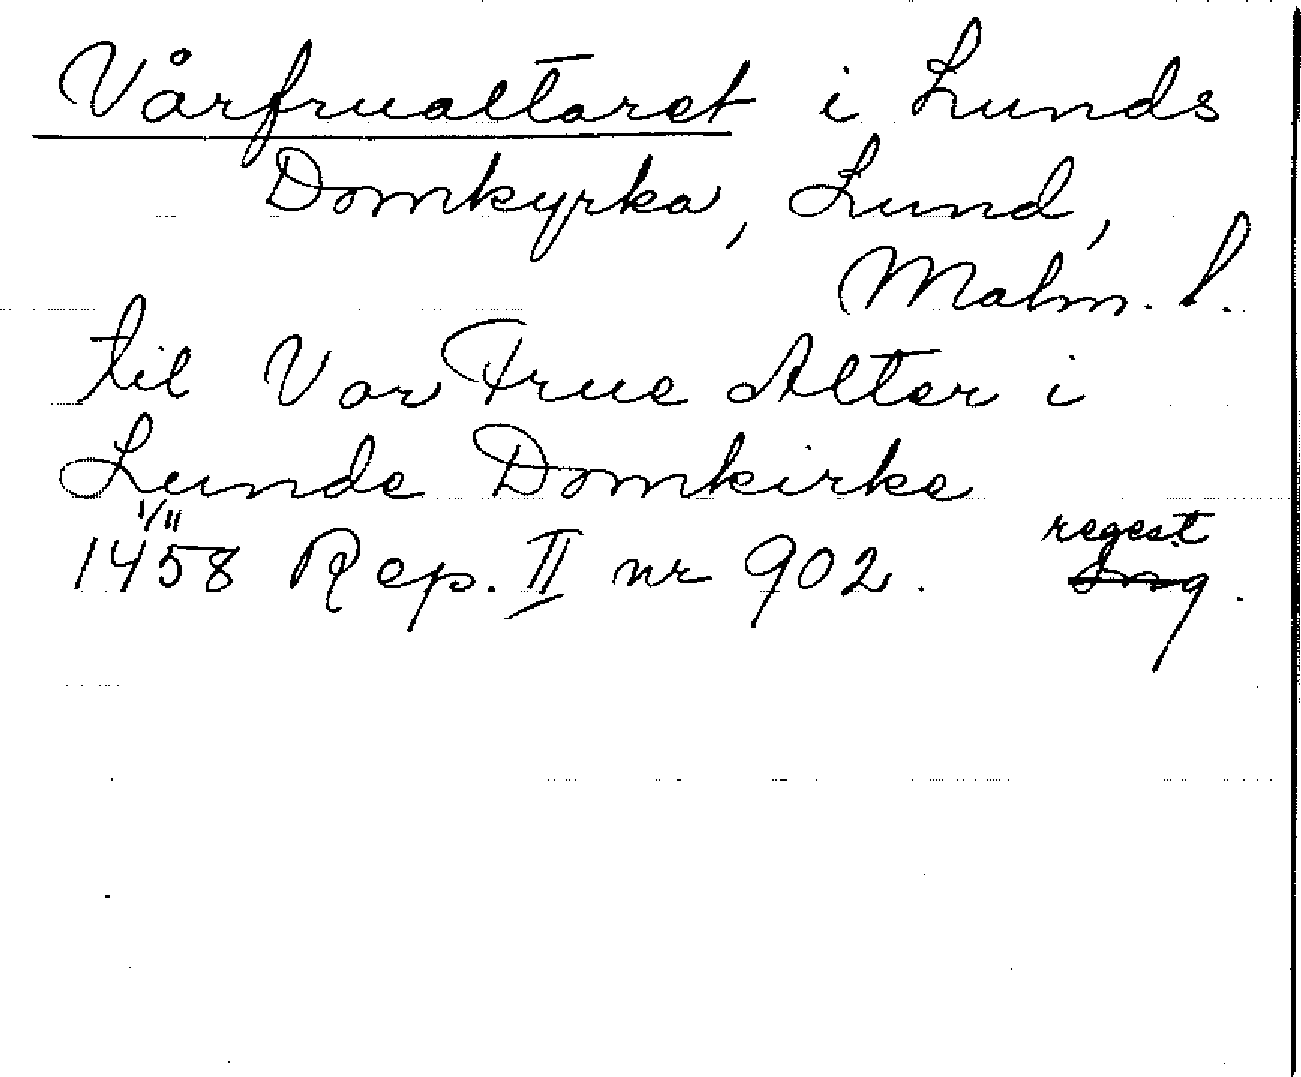 Vårfrualtaret i Lunds
Domkyrka, Lund,
Malm. l.
til Vor Frue Alter i
Lunde Domkirke
1/11 regest
1458 Rep. II nr 902.